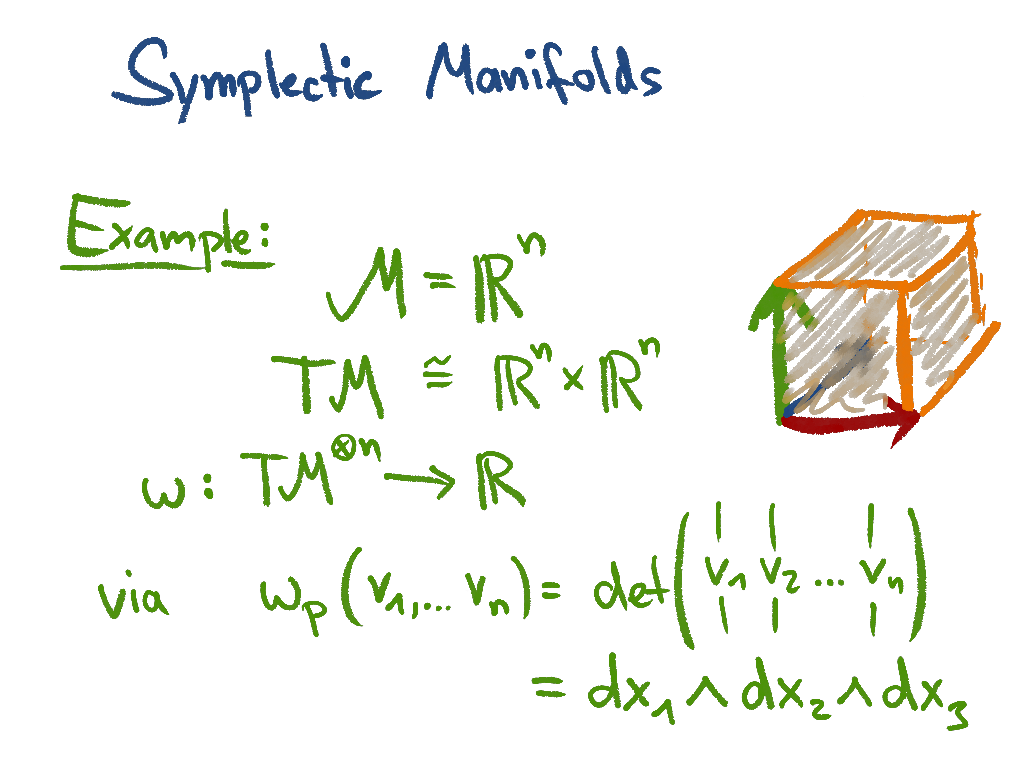 Symplectic Manifolds
Example:
M = ℝⁿ
TM ≅ ℝⁿ × ℝⁿ
ω : TM^⊗n → ℝ
via ω_p (v₁,... vₙ) = det ( v₁ v₂ ... vₙ )
= dx₁ ∧ dx₂ ∧ dx₃